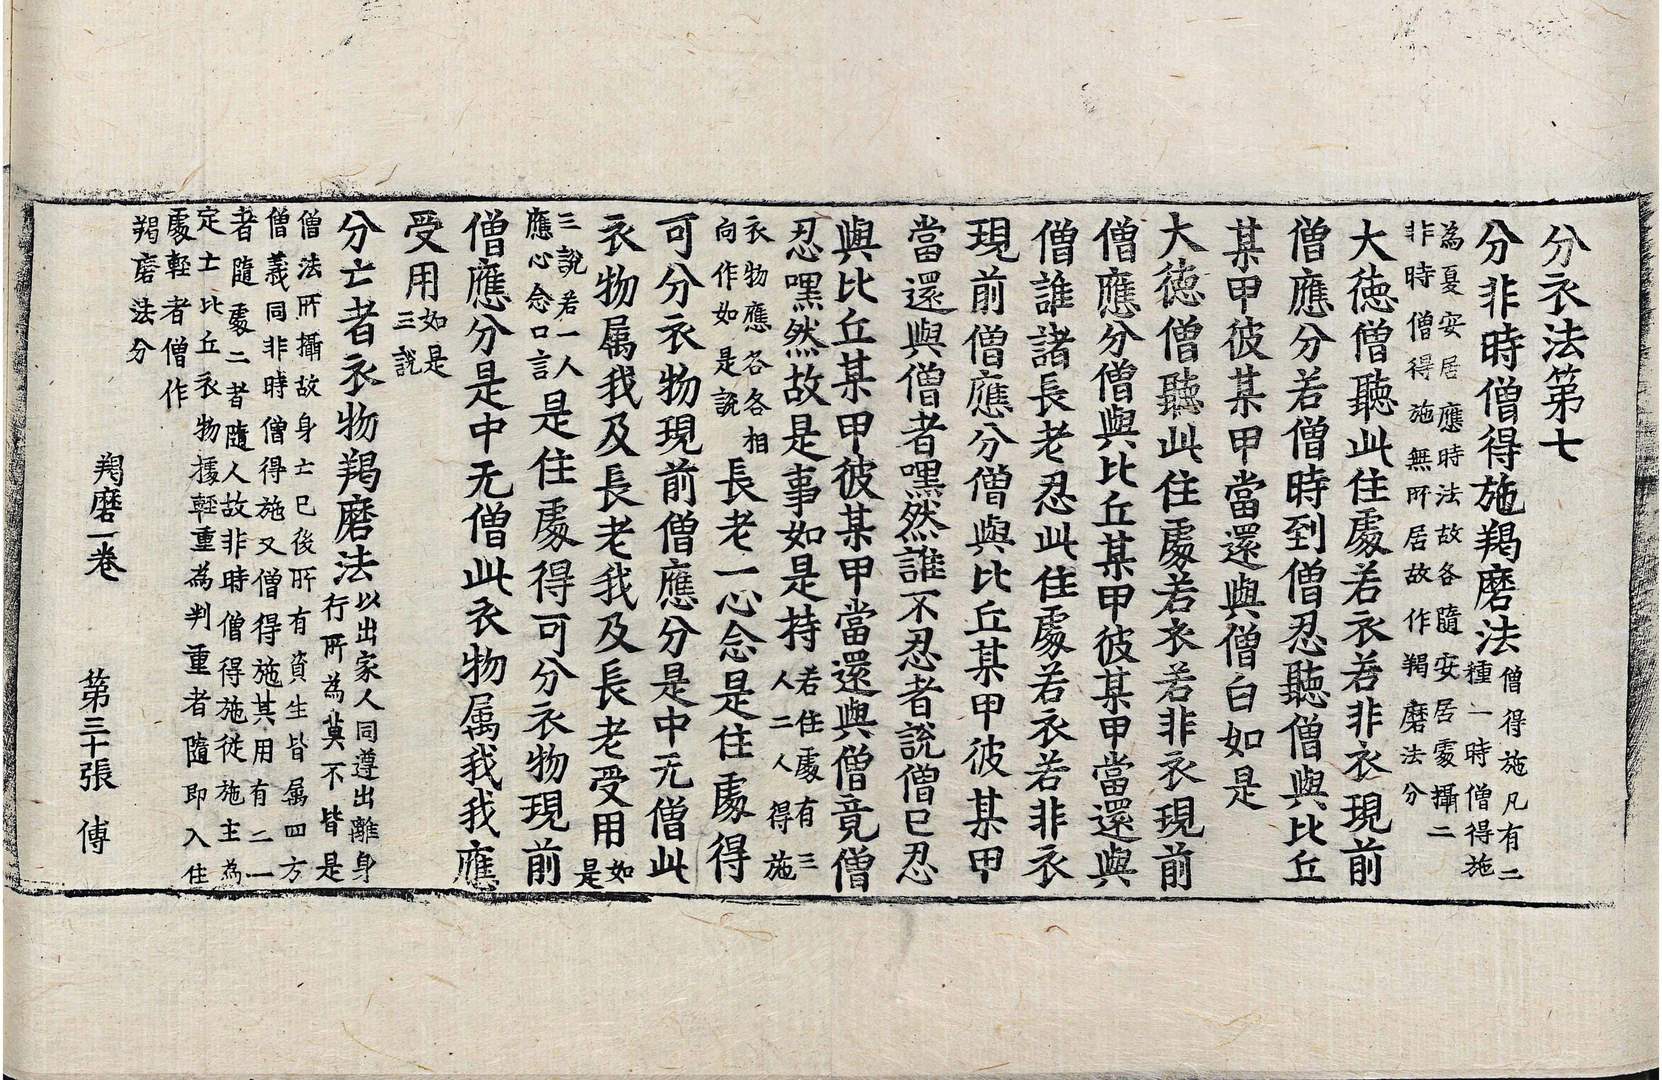 分衣法第七
分非時僧得施羯磨法僧得施凡有二
種一時僧得施
為夏安居應時法故各隨安居處攝二
非時僧得施無所居故作羯磨法分
大徳僧聽此住處若衣若非衣現前
僧應分若僧時到僧忍聽僧與比丘
某甲彼某甲當還與僧白如是
大徳僧聽此住處若衣若非衣現前
僧應分僧與比丘某甲彼某甲當還與
僧誰諸長老忍此住處若衣若非衣
現前僧應分僧與比丘某甲彼某甲
當還與僧者嘿然誰不忍者說僧已忍
與比丘某甲彼某甲當還與僧竟僧
忍嘿然故是事如是持若住處有三
人二人得施
衣物應各各相
向作如是說長老一心念是住處得
可分衣物現前僧應分是中无僧此
衣物属我及長老我及長老受用如
是
三說若一人
應心念口言是住處得可分衣物現前
僧應分是中无僧此衣物属我我應
受用如是
三說
分亡者衣物羯磨法以出家人同遵出離身
行所為莫不皆是
僧法所攝故身亡已後所有資生皆属四方
僧義同非時僧得施又僧得施其用有二一
者隨處二者隨人故非時僧得施從施主為
定士比丘衣物據輕重為判重者隨即入住
處輕者僧作
羯磨法分
羯磨一卷 第三十張 傅